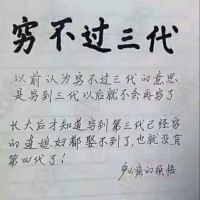 穷不过三代
以前认为穷不过三代的意思
是穷到三代以后就不会再穷了
长大后才知道穷到第三代已经穷
的连媳妇都娶不到了,也就没有
第四代了!
多么痛的领悟